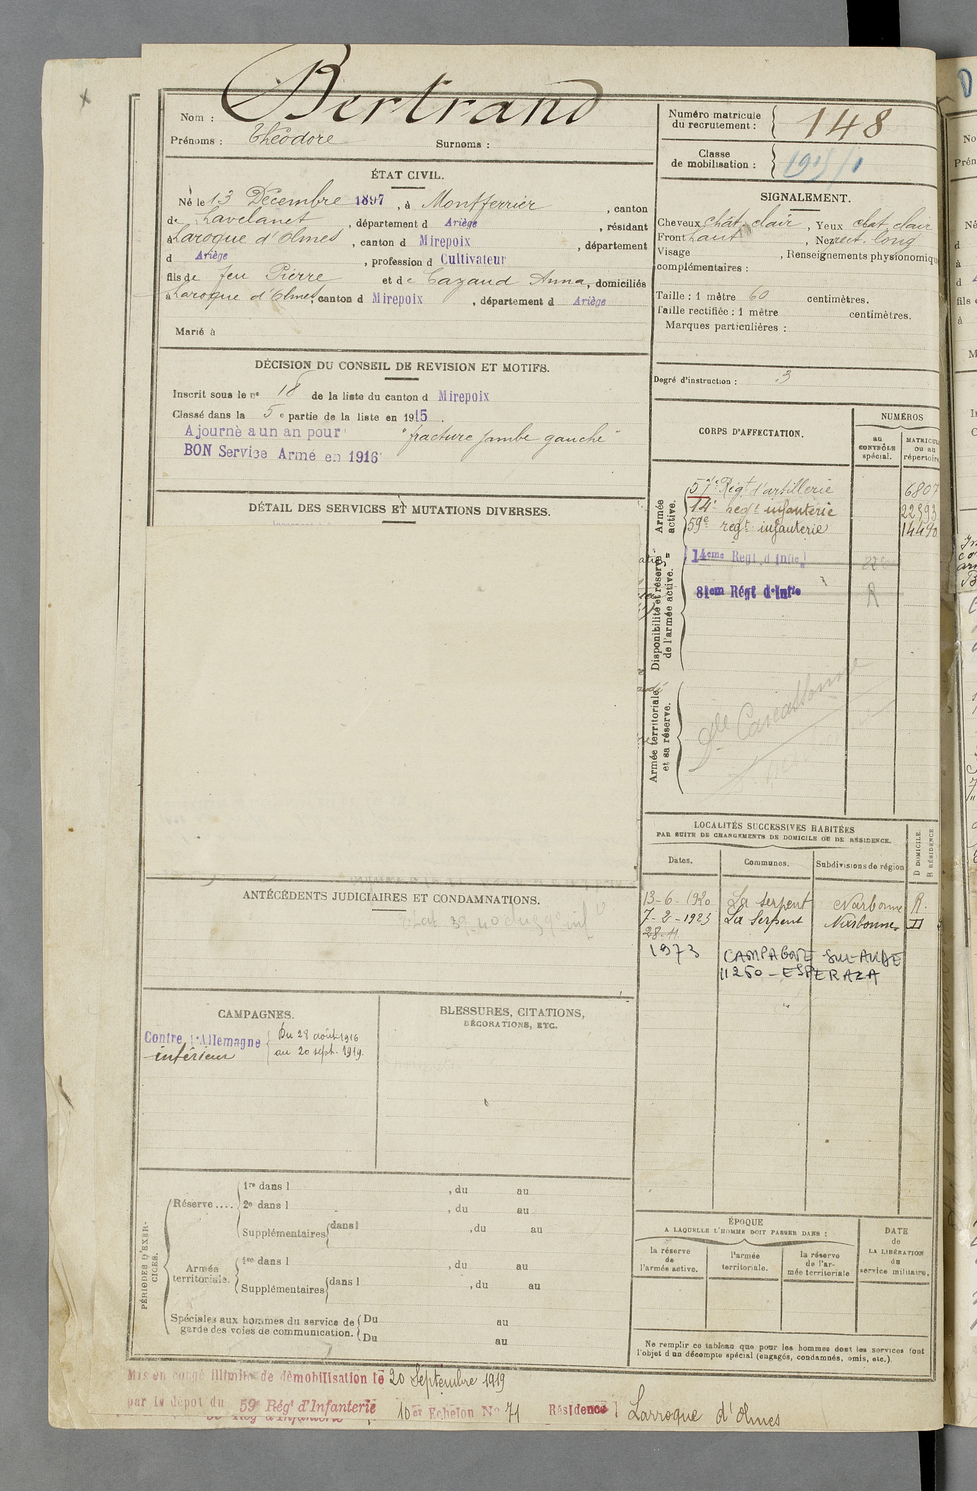 Nom : Bertrand
Prénoms : Théodore Surnoms :
Numéro matricule du recrutement : 148
Classe de mobilisation :
ÉTAT CIVIL.
Né le 13 Décembre 1897, à Montferrier, canton
de Lavelanet, département d Ariège, résidant
à Laroque d'Olmes, canton d Mirepoix, département
d Ariège, profession d Cultivateur
fils de feu Pierre et de Cazaud Anna, domiciliés
à Laroque d'Olmes, canton d Mirepoix, département d Ariège
Marié à
SIGNALEMENT.
Cheveux chât. clair, Yeux chat clair
Front haut, Nez rect. long
Visage , Renseignements physionomiqu
complémentaires :
Taille : 1 mètre 60 centimètres.
Taille rectifiée : 1 mètre centimètres.
Marques particulières :
Degré d'instruction : 3
DÉCISION DU CONSEIL DE REVISION ET MOTIFS.
Inscrit sous le n° 18 de la liste du canton d Mirepoix
Classé dans la 5e partie de la liste en 1915.
Ajourné a un an pour "fracture jambe gauche"
BON Service Armé en 1916
DÉTAIL DES SERVICES ET MUTATIONS DIVERSES.
CORPS D'AFFECTATION.
NUMÉROS
au CONTRÔLE spécial.
MATRICUL ou au répertoire
Armée active.
57e Régt d'artillerie 6807
14e regt infanterie 22393
59e regt infanterie 14490
Disponibilité et réserve de l'armée active.
14eme Regt d Infie
81em Régt d'Infie R
Armée territoriale et sa réserve.
Sdle Carcassonne
LOCALITÉS SUCCESSIVES HABITÉES
PAR SUITE DE CHANGEMENTS DE DOMICILE OU DE RÉSIDENCE.
Dates. Communes. Subdivisions de région
D DOMICILE.
R RÉSIDENCE
13-6-1920 La Serpent Narbonne R.
7-2-1923 La Serpent Narbonne D
28-11
1973 CAMPAGNE SUR AUDE
11260 - ESPERAZA
ANTÉCÉDENTS JUDICIAIRES ET CONDAMNATIONS.
CAMPAGNES.
Contre l'Allemagne Du 28 août 1916
intérieur au 20 sept. 1919.
BLESSURES, CITATIONS,
DÉCORATIONS, ETC.
PÉRIODES D'EXERCICES.
Réserve .... 1re dans l , du au
2e dans l , du au
Supplémentaires dans l , du au
Armée territoriale. 1re dans l , du au
Supplémentaires dans l , du au
Spéciales aux hommes du service de garde des voies de communication. Du au
Du au
ÉPOQUE
A LAQUELLE L'HOMME DOIT PASSER DANS :
la réserve de l'armée active.
l'armée territoriale.
la réserve de l'armée territoriale
DATE de LA LIBÉRATION du service militaire.
Ne remplir ce tableau que pour les hommes dont les services font
l'objet d'un décompte spécial (engagés, condamnés, omis, etc.)
Mis en congé illimité de démobilisation le 20 Septembre 1919
par le dépot du 59e Régt d'Infanterie 10er Echelon N° 71 Résidence Larroque d'Olmes